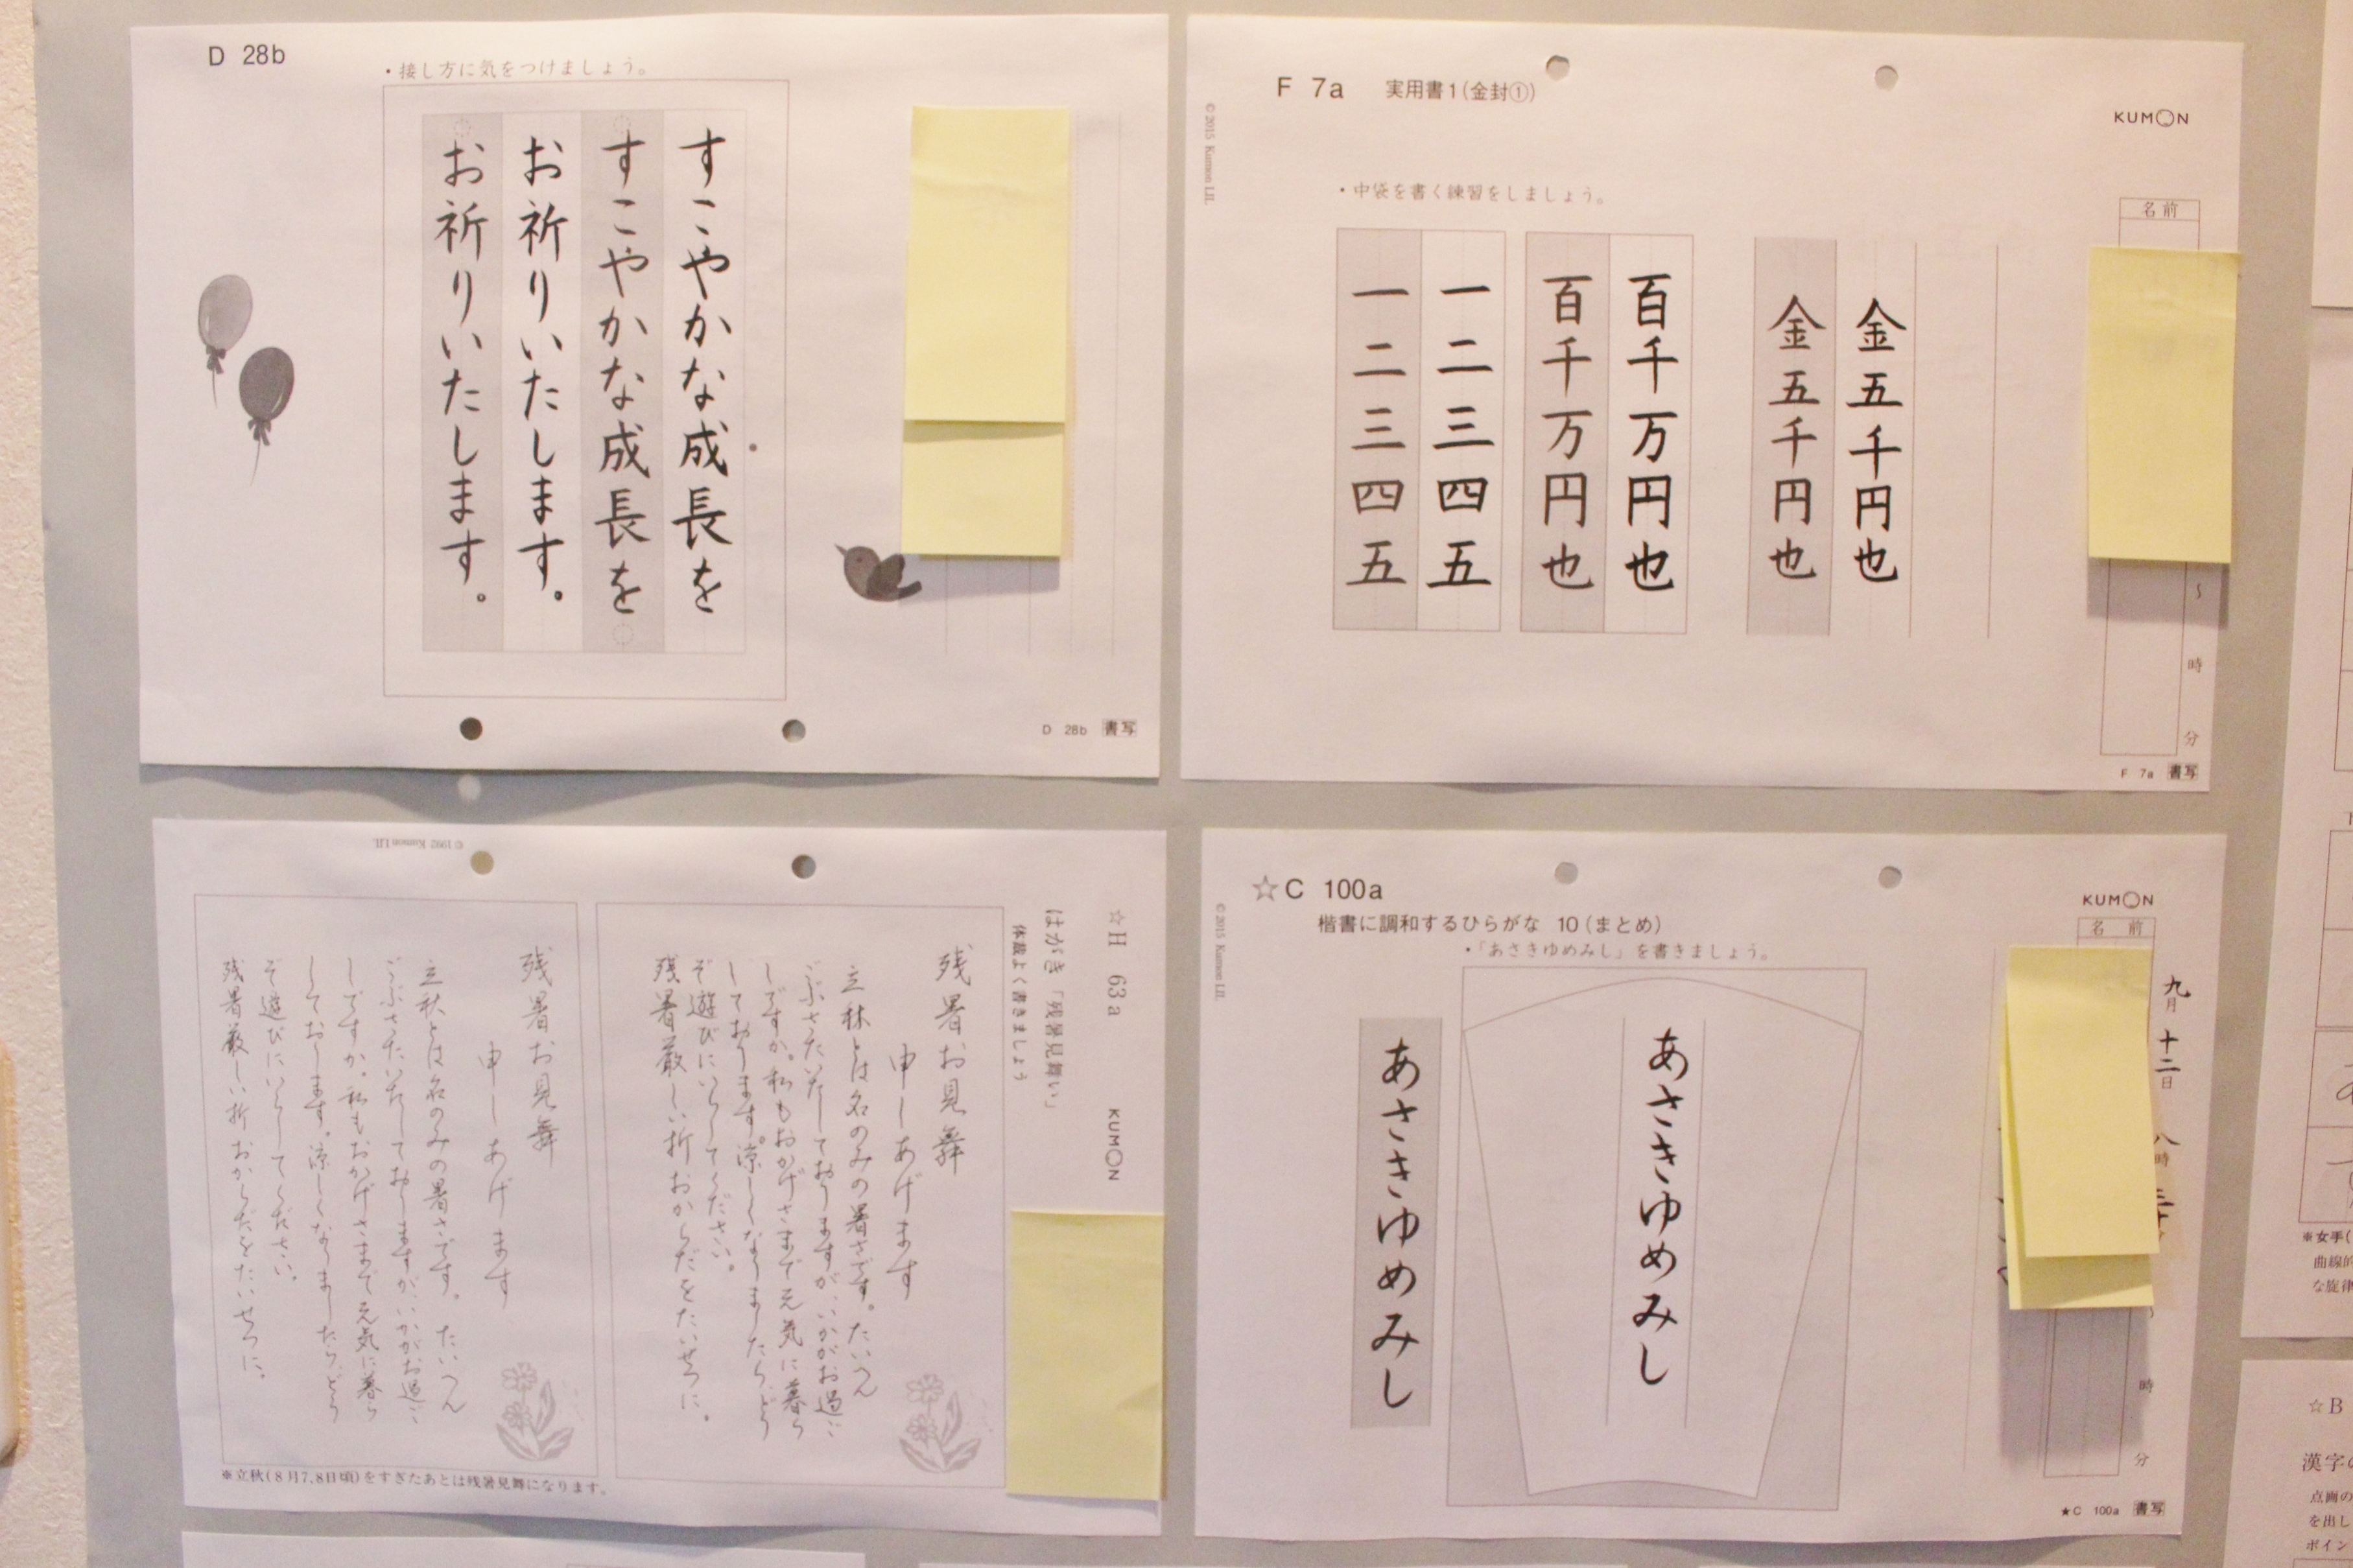 D 28b
・接し方に気をつけましょう。
すこやかな成長を
すこやかな成長を
お祈りいたします。
お祈りいたします。
D 28b 書写
F 7a 実用書1(金封①)
KUMON
© 2015 Kumon I.II.
・中袋を書く練習をしましょう。
名前
金五千円也
金五千円也
百千万円也
百千万円也
一二三四五
一二三四五
〜
時
分
F 7a 書写
© 1992 Kumon I.II.
☆H 63a
KUMON
はがき「残暑見舞い」
体裁よく書きましょう
残暑お見舞
申しあげます
立秋とは名のみの暑さです。たいへん
ごぶさたいたしておりますが、いかがお過ご
しですか。私もおかげさまで元気に暮ら
しております。涼しくなりましたら、どう
ぞ遊びにいらしてください。
残暑厳しい折おからだをたいせつに。
残暑お見舞
申しあげます
立秋とは名のみの暑さです。たいへん
ごぶさたいたしておりますが、いかがお過ご
しですか。私もおかげさまで元気に暮ら
しております。涼しくなりましたら、どう
ぞ遊びにいらしてください。
残暑厳しい折おからだをたいせつに。
※立秋(8月7,8日頃)をすぎたあとは残暑見舞になります。
☆C 100a
KUMON
© 2015 Kumon I.II.
楷書に調和するひらがな 10(まとめ)
・「あさきゆめみし」を書きましょう。
名前
九月十二日
八時
あさきゆめみし
あさきゆめみし
時
分
★C 100a 書写
※女手(
曲線的
な旋律
☆B
漢字の
点画の
を出し
ポイン